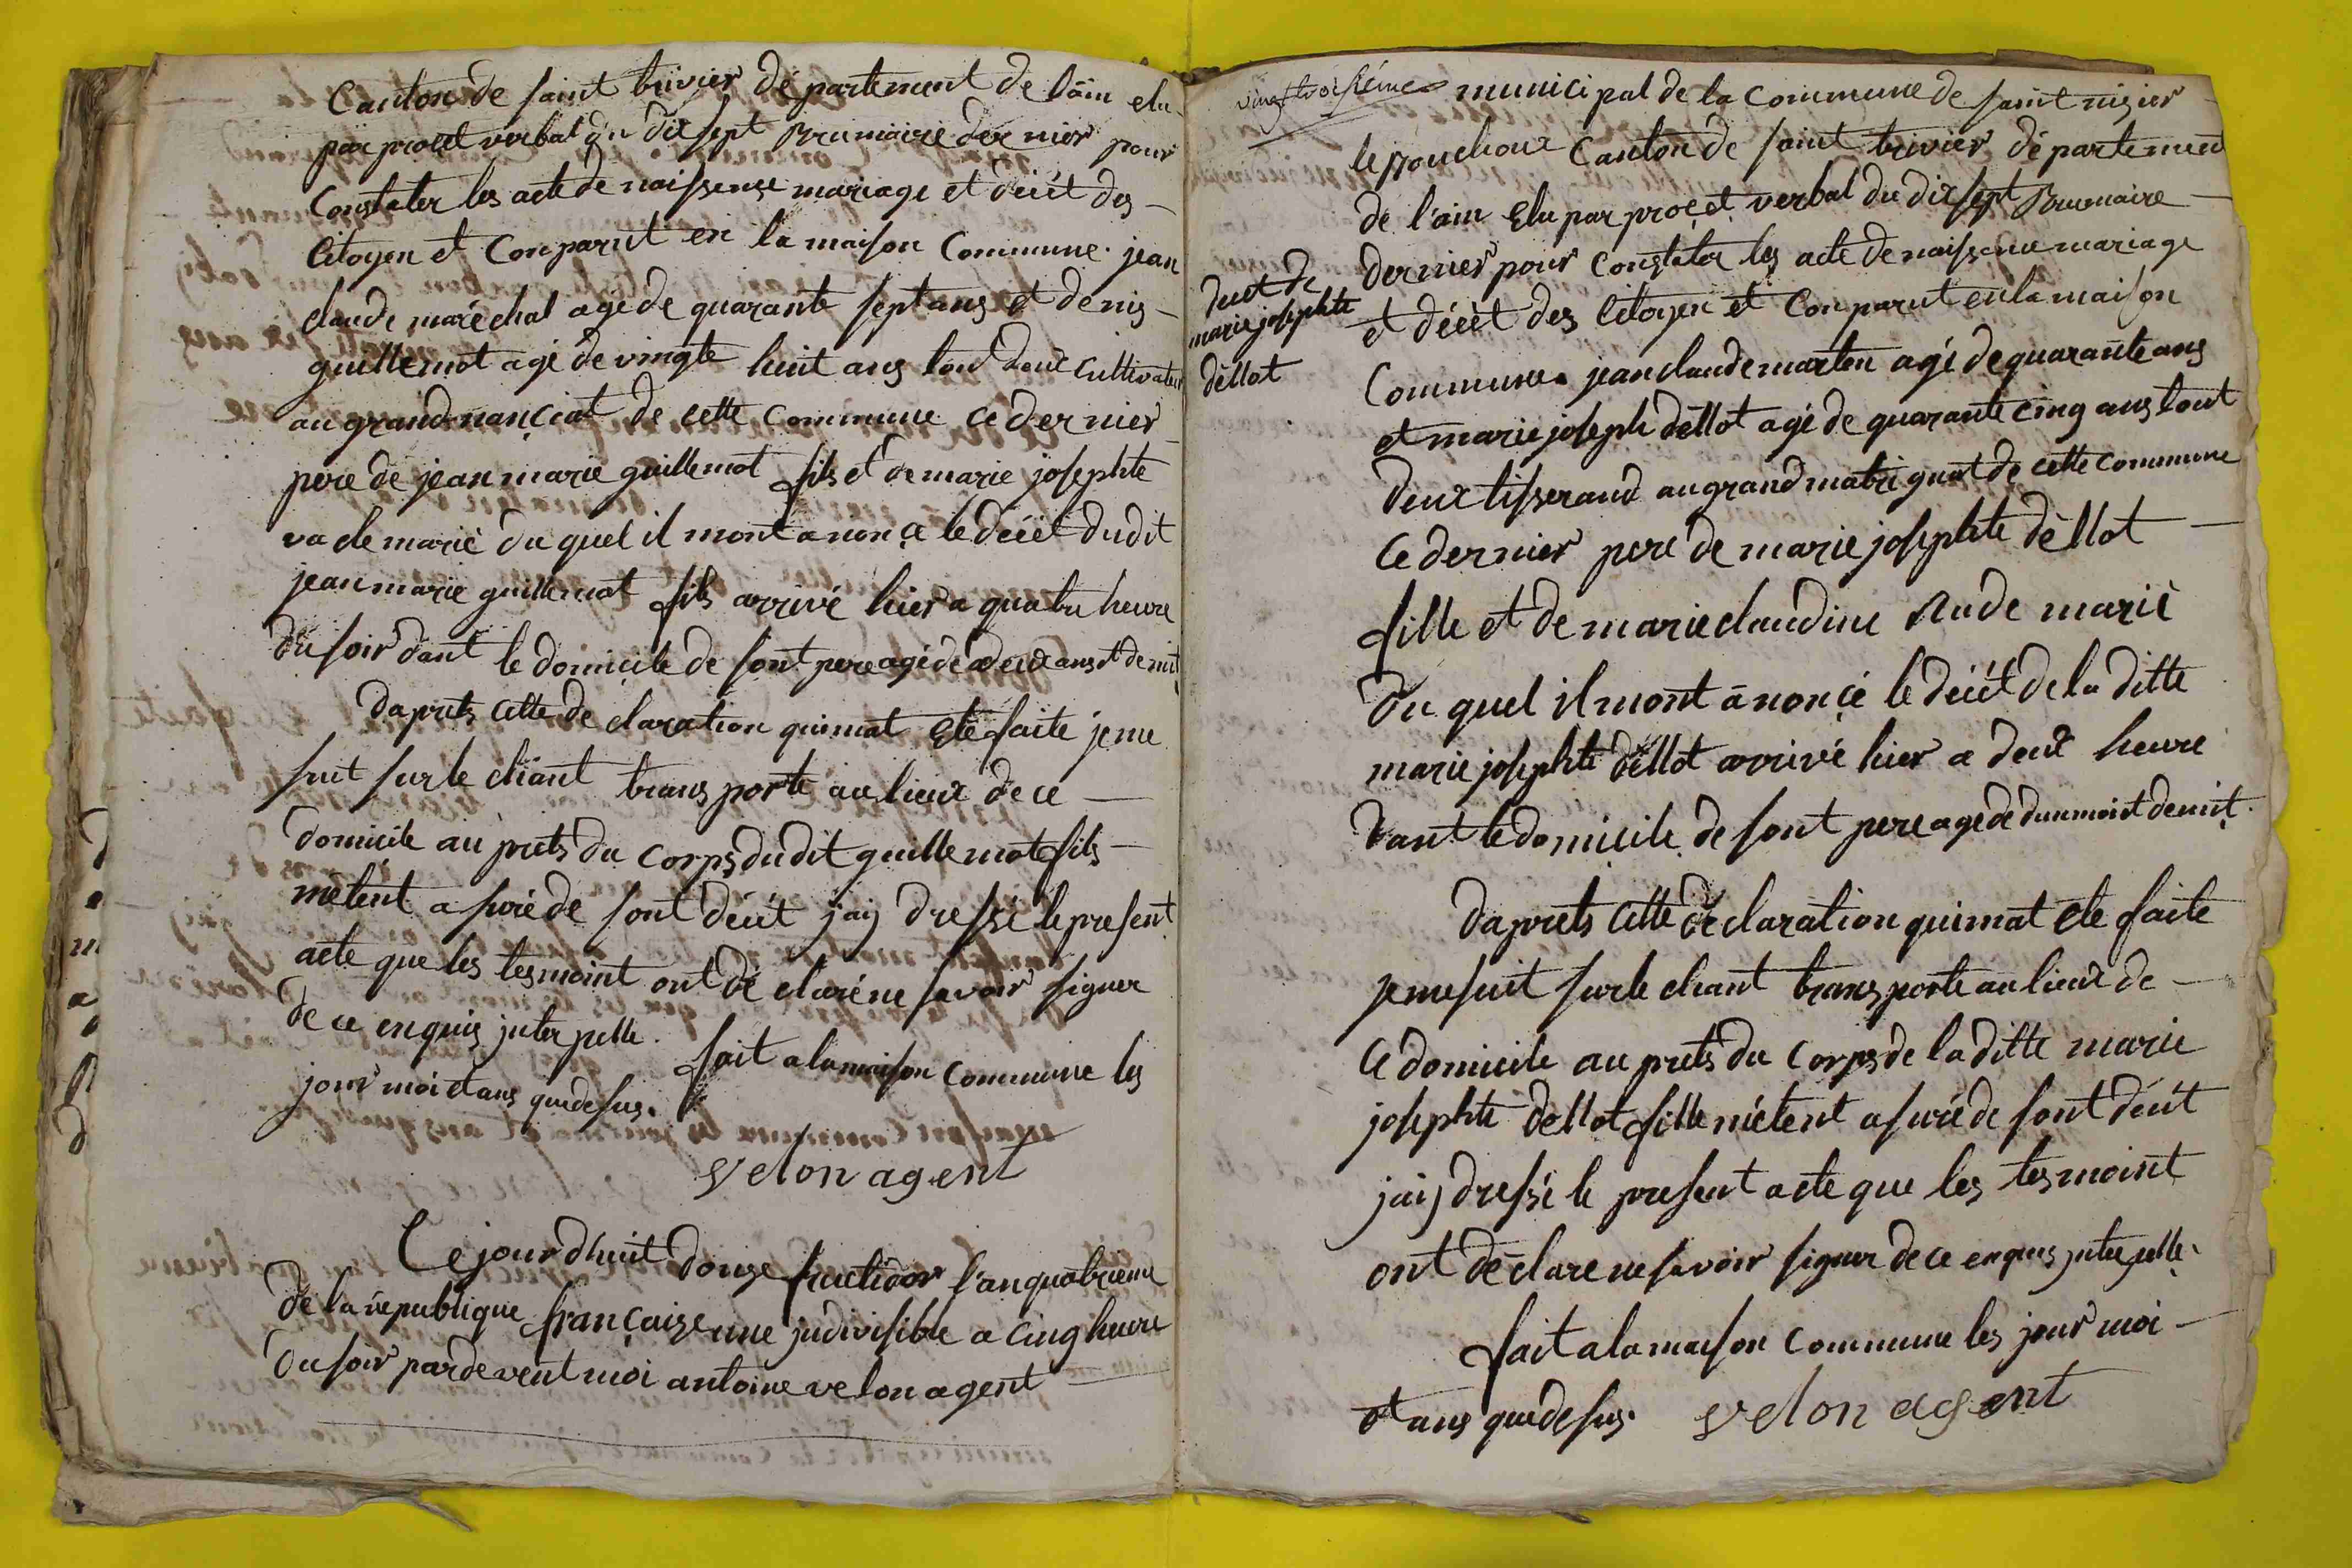 Canton de saint trivier département de l'ain elu
par procet verbal du dixsept Brumaire dernier pour
Constater les acte de naissense mariage et déçét des
Citoyen et Comparut en la maison Commune. jean
claude maréchal agé de quarante sept ans et denis
guillemot agé de vingte huit ans tout deux cultivateur
au grand nançiat de cette commune ce dernier
pere de jean marie guillemot fils et de marie josephte
va de marié du quel il mont anonçe le déçét dudit
jean marie guillemot fils arrivé hier a quatre heure
du soir dant le domicile de sont pere agé de deux ans et demit
daprets cette de claration quimat Eté faite je me
suit sur le chant trans porté au lieux de ce
domicile au prets du corps dudit guillemot fils
mètent asuré de sont déçét jaij dressé le present
acte que les tesmoint ont dé claré ne savoir signer
de ce enquis jnter pelle. fait a la maison Commune les
jour moi et ans que desus.
velon agent
Ce jour dhuit douze fructidor l'an quatrieme
de la republique française une jndivisible a cinq heure
du soir pardevent moi antoine velon agent
vingt troisiéme
municipal de la Commune de saint nizier
le Bouchoux Canton de saint trivier département
de l'ain Elu par proçet verbal du dixsept Brumaire
dernier pour Constater les acte de naissense mariage
et déçét des Citoyen et Comparut en la maison
décét de
marie josephte
dèllot
Commune. jean claude marton agé de quarante ans
et marie joseph dèllot agé de quarante cinq ans tout
deux tisserand au grand matrignat de cette commune
Ce dernier pere de marie josephte dèllot
fille et de marie claudine Rude marié
du quel il mont anonçé le déçét de la ditte
marie josephte dèllot arrivé hier a deux heure
dant le domicile de sont pere agé de dun moit demit.
daprets cette déclaration quimat eté faite
je me suit sur le chant trans porté au lieux de
Ce domicile au prets du Corps de la ditte marie
josephte dellot fille métent asuré de sont déçét
jaij dressé le present acte que les tesmoint
ont dé claré ne savoir signer de ce enquis jnter pelle.
fait a la maison Commune les jour moi
et ans que desus. velon agent